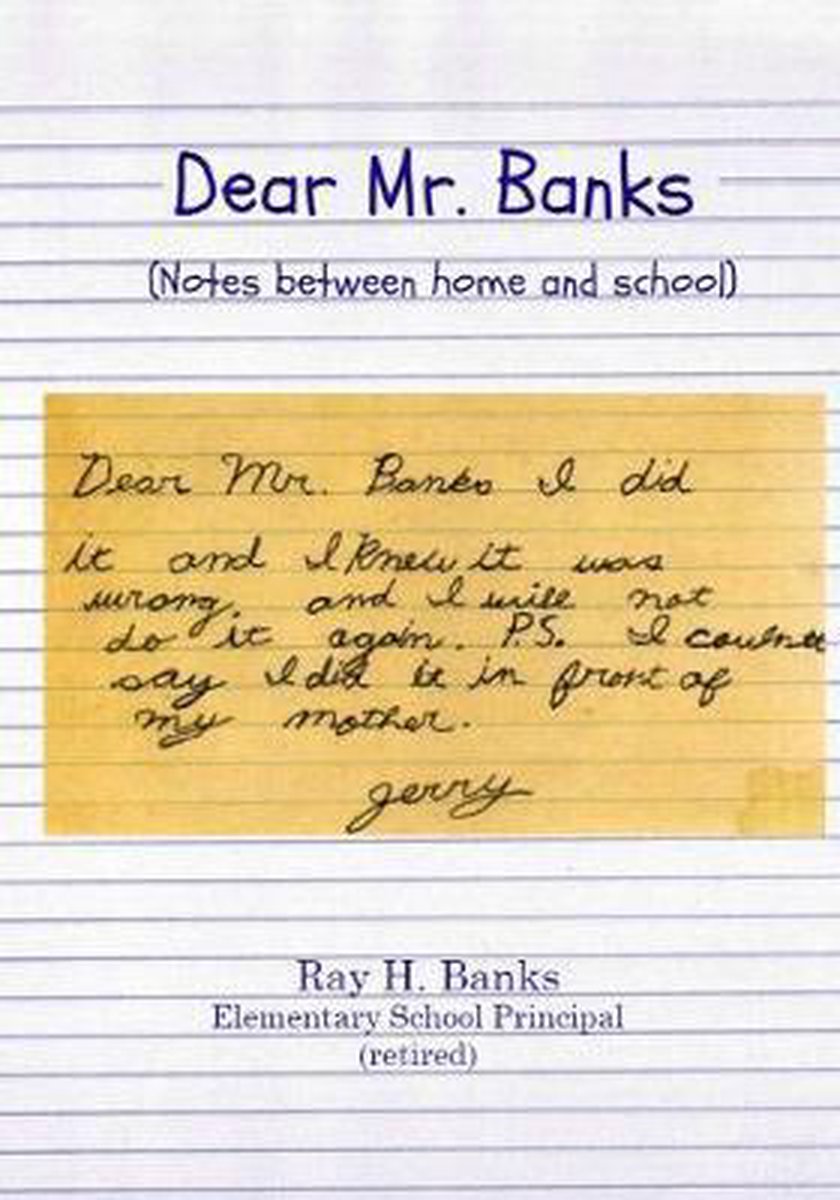 Dear Mr. Banks
(Notes between home and school)
Dear Mr. Banks I did
it and I knew it was
wrong. and I will not
do it again. P.S. I
say I did it in front of
my mother.
jerry
Ray H. Banks
Elementary School Principal
(retired)